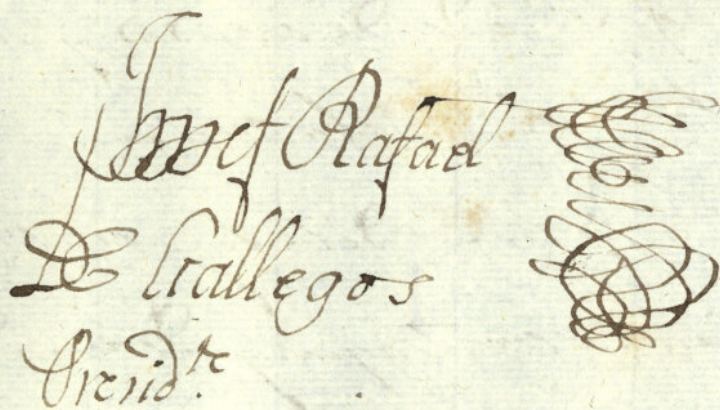 Josef Rafael
De Gallegos
Presid.te